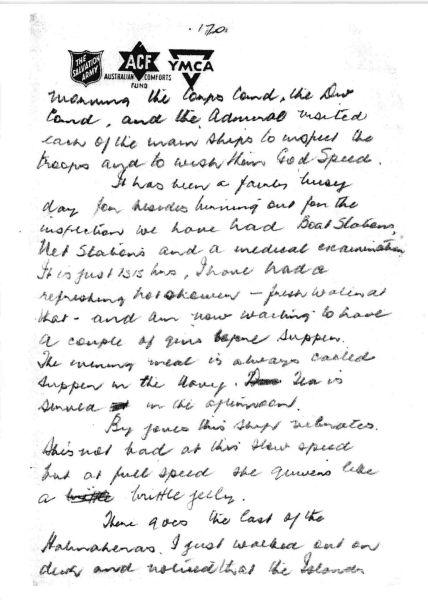 170.
THE SALVATION ARMY
ACF
AUSTRALIAN COMFORTS FUND
YMCA
morning the Corps Comd, the Div
Comd, and the Admiral visited
each of the main ships to inspect the
troops and to wish them God Speed.
It has been a fairly busy
day for besides turning out for the
inspection we have had Boat Stations,
Net Stations and a medical examination
It is just 1815 hrs, I have had a
refreshing hot shower – fresh water at
that – and am now waiting to have
a couple of gins before supper.
The evening meal is always called
supper in the Navy. Tea is
served in the afternoon.
By joves this ship vibrates.
She's not bad at this slow speed
but at full speed she quivers like
a brittle jelly.
There goes the last of the
Halmaheras. I just walked out on
deck and noticed that the Islands